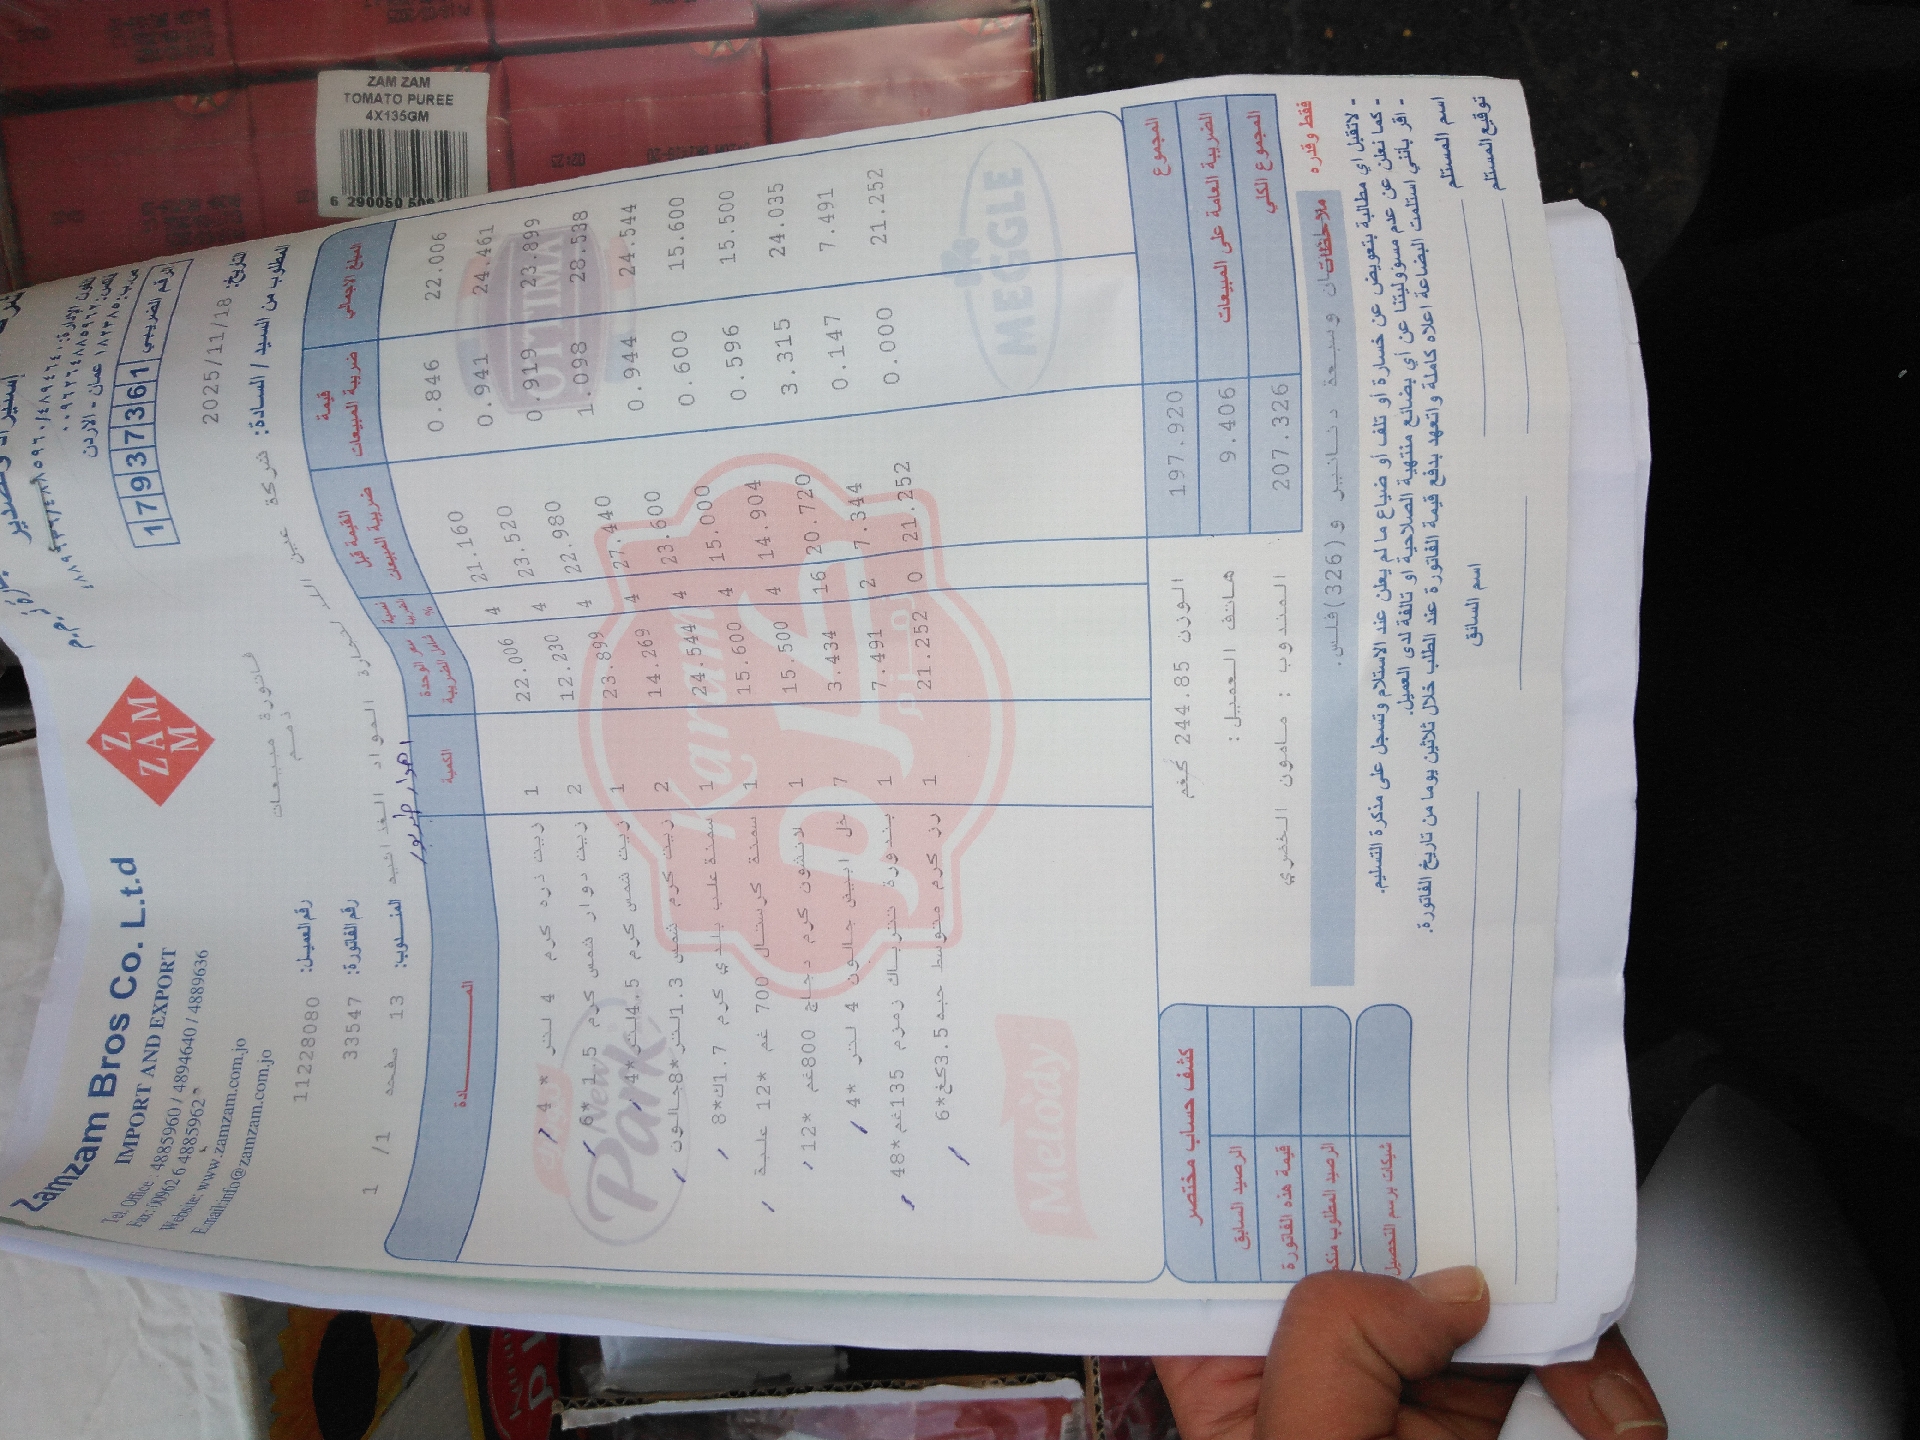 Zamzam Bros Co. L.t.d
IMPORT AND EXPORT
Tel. Office: 4885960 / 4894640 / 4889636
Fax: 00962 6 4885962
Website: www.zamzam.com.jo
E.mail:info@zamzam.com.jo
Z
ZAM
M
ص.ب: ١٨٢٣٨٥ عمان - الأردن
الرقم الضريبي 17937361
فاتورة مبيعات
ذمم
التاريخ: 2025/11/18
رقم العميل: 11228080
المطلوب من السيد / السادة: شركة عين اللـ لتجارة المواد الغذائيه
رقم الفاتورة: 33547
المندوب: 13 صفحه 1/ 1
المــــادة الكمية سعر الوحدة شامل الضريبة نسبة الضريبة % القيمة قبل ضريبة المبيعات قيمة ضريبة المبيعات المبلغ الاجمالي
زيت ذره كرم 4 لتر *4 1 22.006 4 21.160 0.846 22.006
زيت دوار شمس كرم 1.5 *6 2 12.230 4 23.520 0.941 24.461
زيت شمس كرم 4.5لتر*4 1 23.899 4 22.980 0.919 23.899
زيت كرم شمس 1.3لتر*8جالون 2 14.269 4 27.440 1.098 28.538
سمنة علب بلدي كرم 1.7ك*8 1 24.544 4 23.600 0.944 24.544
سمنة كرستال 700 غم *12 علبة 1 15.600 4 15.000 0.600 15.600
لانشون كرم دجاج 800غم *12 1 15.500 4 14.904 0.596 15.500
خل ابيض جالون 4 لتر *4 7 3.434 16 20.720 3.315 24.035
بندورة تتراباك زمزم 135غم*48 1 7.491 2 7.344 0.147 7.491
رز كرم متوسط حبه 3.5كغ*6 1 21.252 0 21.252 0.000 21.252
OTTIMA
MEGGLE
Karam
New Park
Melody
المجموع 197.920
الضريبة العامة على المبيعات 9.406
المجموع الكلي 207.326
الوزن 244.85 كغم
هاتف العميل :
المندوب : مامون الخضري
كشف حساب مختصر
الرصيد السابق
قيمة هذه الفاتورة
الرصيد المطلوب منكم
شيكات برسم التحصيل
فقط وقدره
ملاحظات
وسبعة دنانير و(326)فلس.
- لاتقبل اي مطالبة بتعويض عن خسارة أو تلف أو ضياع ما لم يعلن عند الاستلام وتسجل على مذكرة التسليم.
- كما نعلن عن عدم مسؤوليتنا عن أي بضائع منتهية الصلاحية أو تالفة لدى العميل.
- اقر بأنني استلمت البضاعة اعلاه كاملة واتعهد بدفع قيمة الفاتورة عند الطلب خلال ثلاثين يوما من تاريخ الفاتورة.
اسم المستلم
توقيع المستلم
اسم السائق
ZAM ZAM
TOMATO PUREE
4X135GM